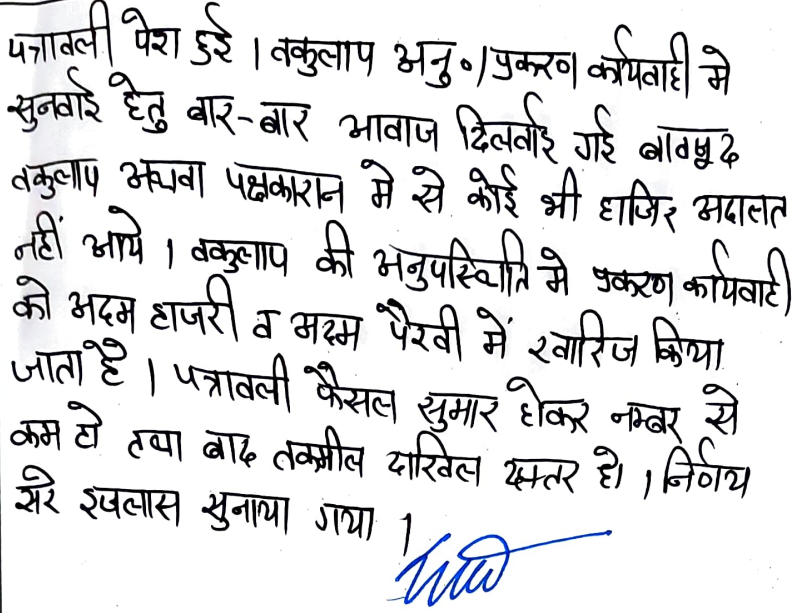 पत्रावली पेश हुई । वकुलाय अनु० । प्रकरण कार्यवाही मे
सुनवाई हेतु बार-बार आवाज दिलवाई गई बावजूद
वकुलाय अथवा पक्षकारान मे से कोई भी हाजिर अदालत
नहीं आये । वकुलाय की अनुपस्थिति मे प्रकरण कार्यवाही
को अदम हाजरी व अदम पैरवी में खारिज किया
जाता है । पत्रावली फैसल सुमार होकर नम्बर से
कम हो तथा बाद तकमील दाखिल दफ्तर हो । निर्णय
सरे इजलास सुनाया गया ।